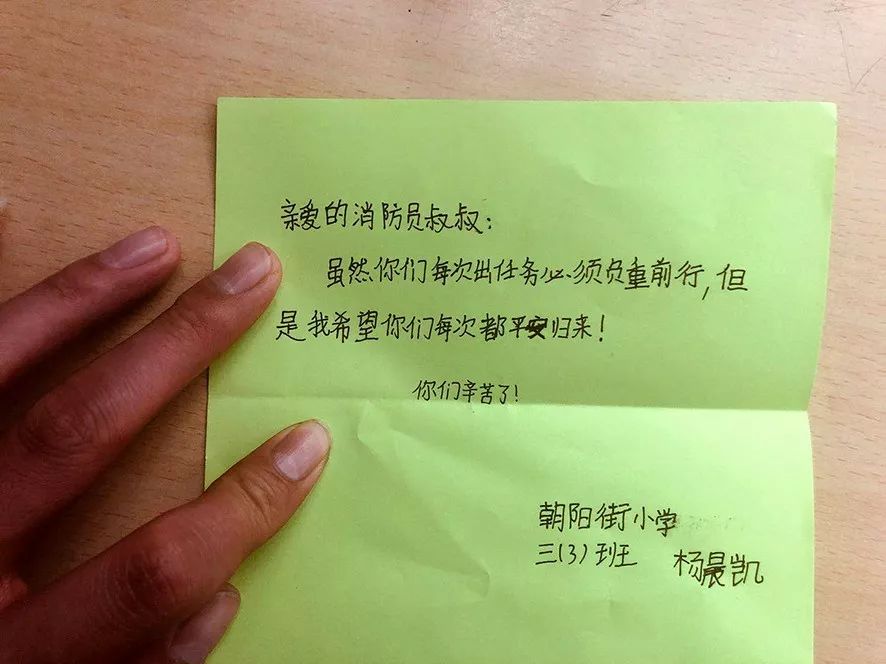 亲爱的消防员叔叔：
虽然你们每次出任务必须负重前行，但
是我希望你们每次都平安归来！
你们辛苦了！
朝阳街小学
三（3）班 杨晨凯